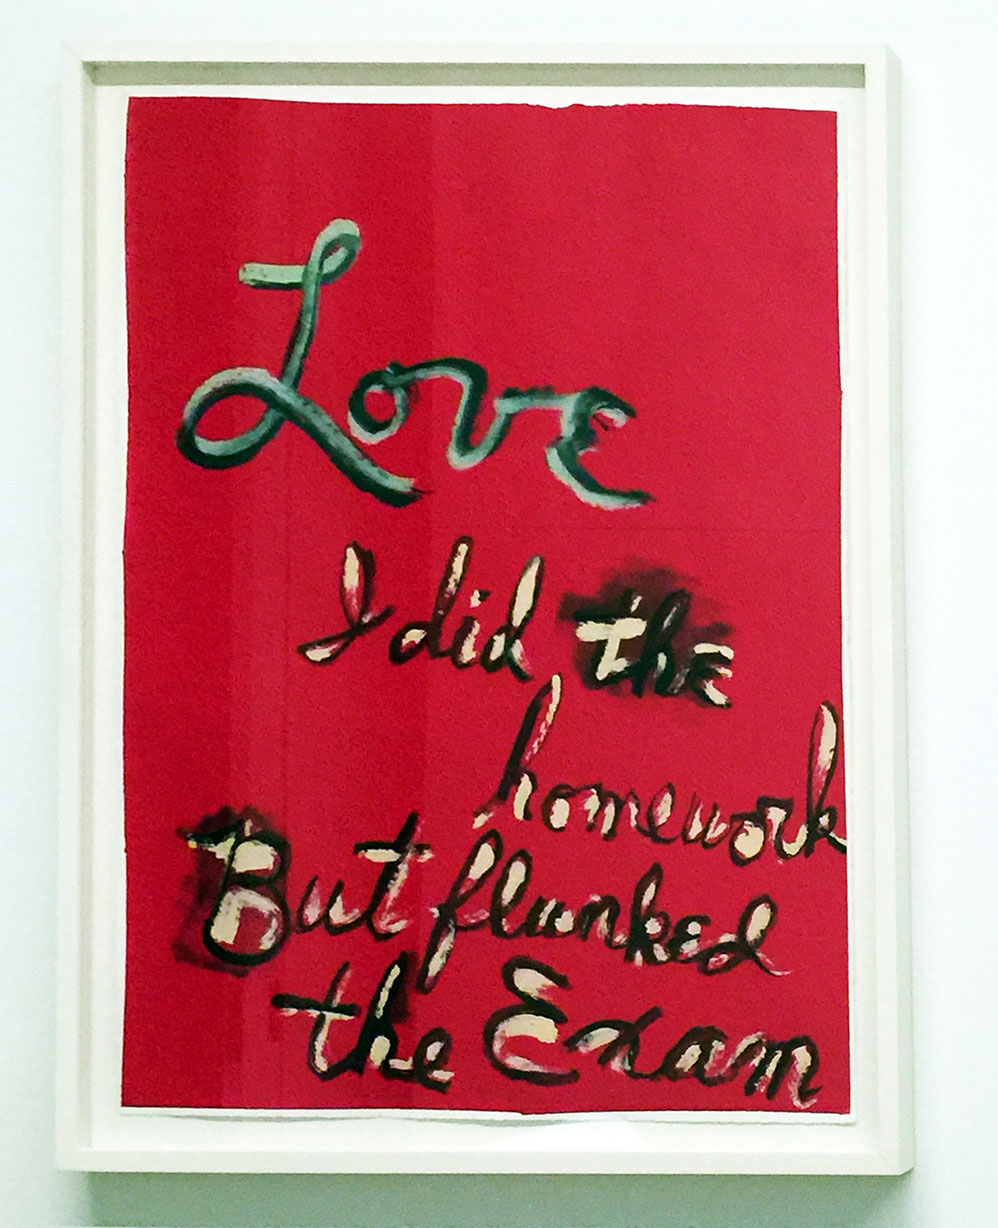 Love
I did the
homework
But flunked
the Exam